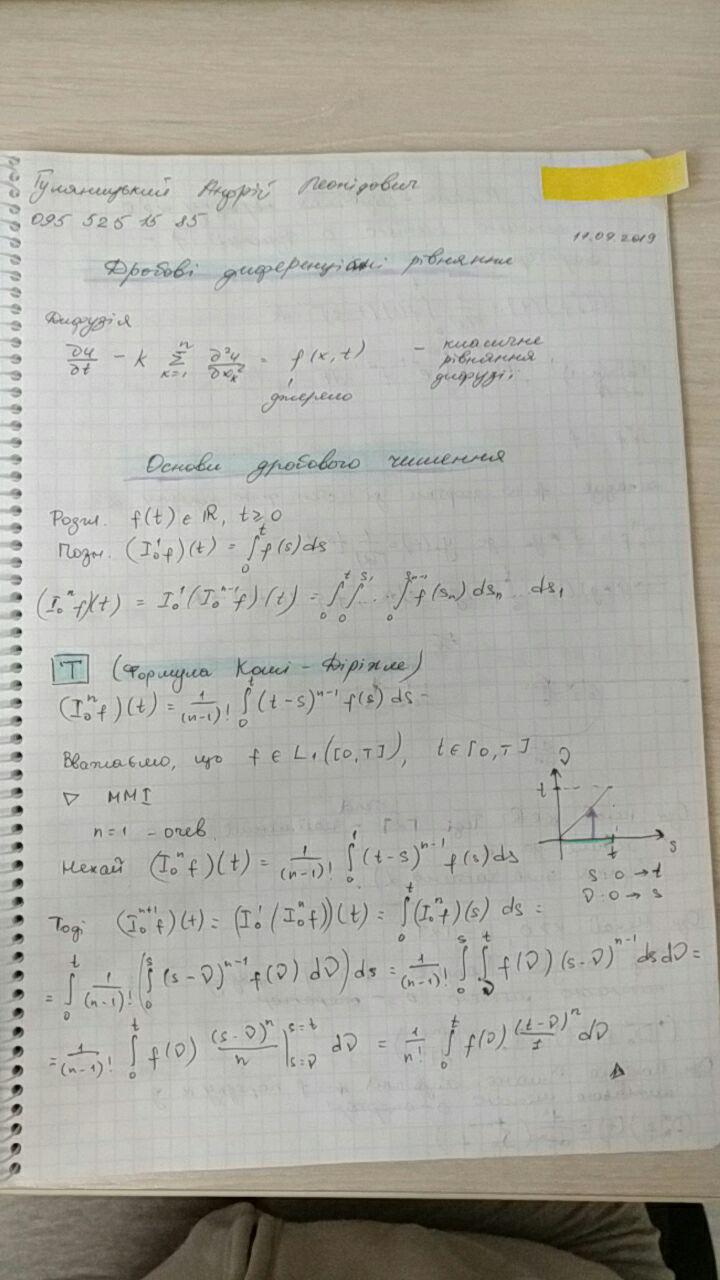 Гуляницький Андрій Леонідович
095 525 15 85
11.09.2019
Дробові диференціальні рівняння
Дифузія
∂u/∂t − k ∑_{k=1}^{n} ∂²u/∂x_k² = f(x, t) – класичне
рівняння
дифузії
джерело
Основи дробового числення
Розгл. f(t) ∈ ℝ, t ≥ 0
Позн. (I₀¹f)(t) = ∫₀ᵗ f(s) ds
(I₀ⁿf)(t) = I₀¹(I₀ⁿ⁻¹f)(t) = ∫₀ᵗ ∫₀^{s₁} ... ∫₀^{sₙ₋₁} f(sₙ) dsₙ ... ds₁
T (Формула Коші - Діріхле)
(I₀ⁿf)(t) = 1/(n-1)! ∫₀ᵗ (t-s)ⁿ⁻¹ f(s) ds
Вважаємо, що f ∈ L₁([0,T]), t ∈ [0,T]
▷ ММІ
n=1 - очев.
Нехай (I₀ⁿf)(t) = 1/(n-1)! ∫₀ᵗ (t-s)ⁿ⁻¹ f(s) ds
ϑ
t
t
s
s: 0 → t
ϑ: 0 → s
Тоді (I₀ⁿ⁺¹f)(t) = (I₀¹(I₀ⁿf))(t) = ∫₀ᵗ (I₀ⁿf)(s) ds =
= ∫₀ᵗ 1/(n-1)! (∫₀ˢ (s-ϑ)ⁿ⁻¹ f(ϑ) dϑ) ds = 1/(n-1)! ∫₀ˢ ∫_ϑᵗ f(ϑ) (s-ϑ)ⁿ⁻¹ ds dϑ =
= 1/(n-1)! ∫₀ᵗ f(ϑ) (s-ϑ)ⁿ/n |_{s=ϑ}^{s=t} dϑ = 1/n! ∫₀ᵗ f(ϑ) (t-ϑ)ⁿ/1 dϑ
△